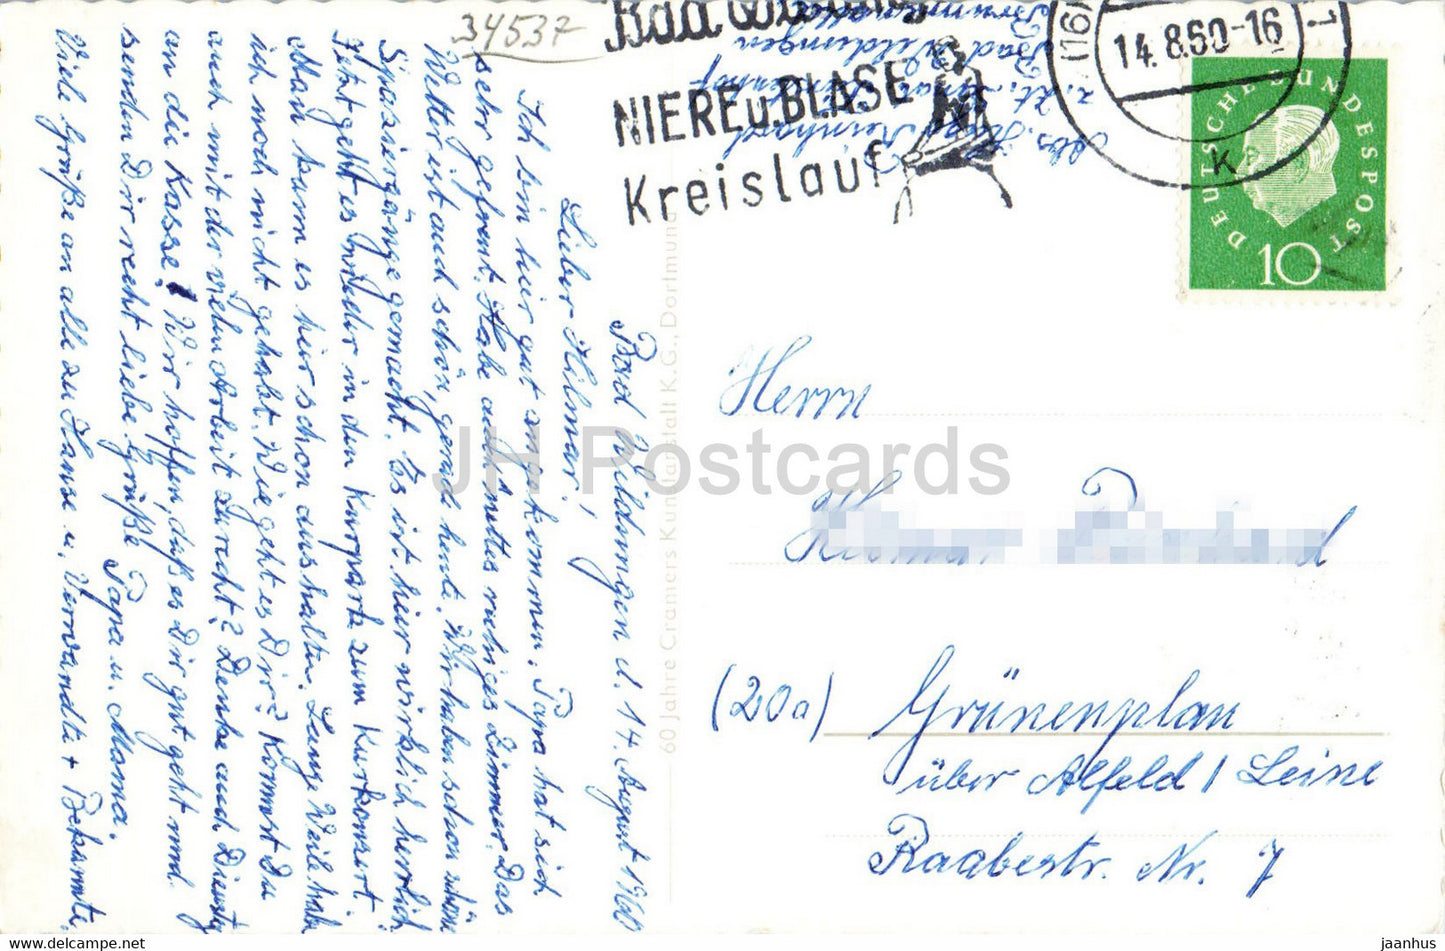 34537
Bad Wildungen
NIERE u. BLASE
Kreislauf
(16)
14.8.60-16
1
K
DEUTSCHE BUNDESPOST
10
Abs. Reinhard
z. Zt.
Bad Wildungen
Bad Wildungen d. 14. August 1960
Lieber Hilmar!
Ich bin hier gut angekommen. Papa hat sich
sehr gefreut. Habe auch nettes ruhiges Zimmer. Das
Wetter ist auch schön, gerade heute. Wir haben schon schöne
Spaziergänge gemacht. Es ist hier wirklich herrlich.
Jetzt geht es wieder in den Kurpark zum Kurkonzert.
Man kann es hier schon aushalten. Lange Weile habe
ich noch nicht gehabt. Wie geht es Dir? Kommst Du
auch mit der vielen Arbeit zurecht? Denke auch Dienstag
an die Kasse! Wir hoffen, daß es Dir gut geht und
senden Dir recht liebe Grüße Papa u. Mama.
Viele Grüße an alle zu Hause u. Verwandte + Bekannte.
60 Jahre Cramers Kunstanstalt K.G., Dortmund
Herrn
(20a) Grünenplan
über Alfeld / Leine
Raabestr. Nr. 7
JH Postcards
www.delcampe.net
jaanhus